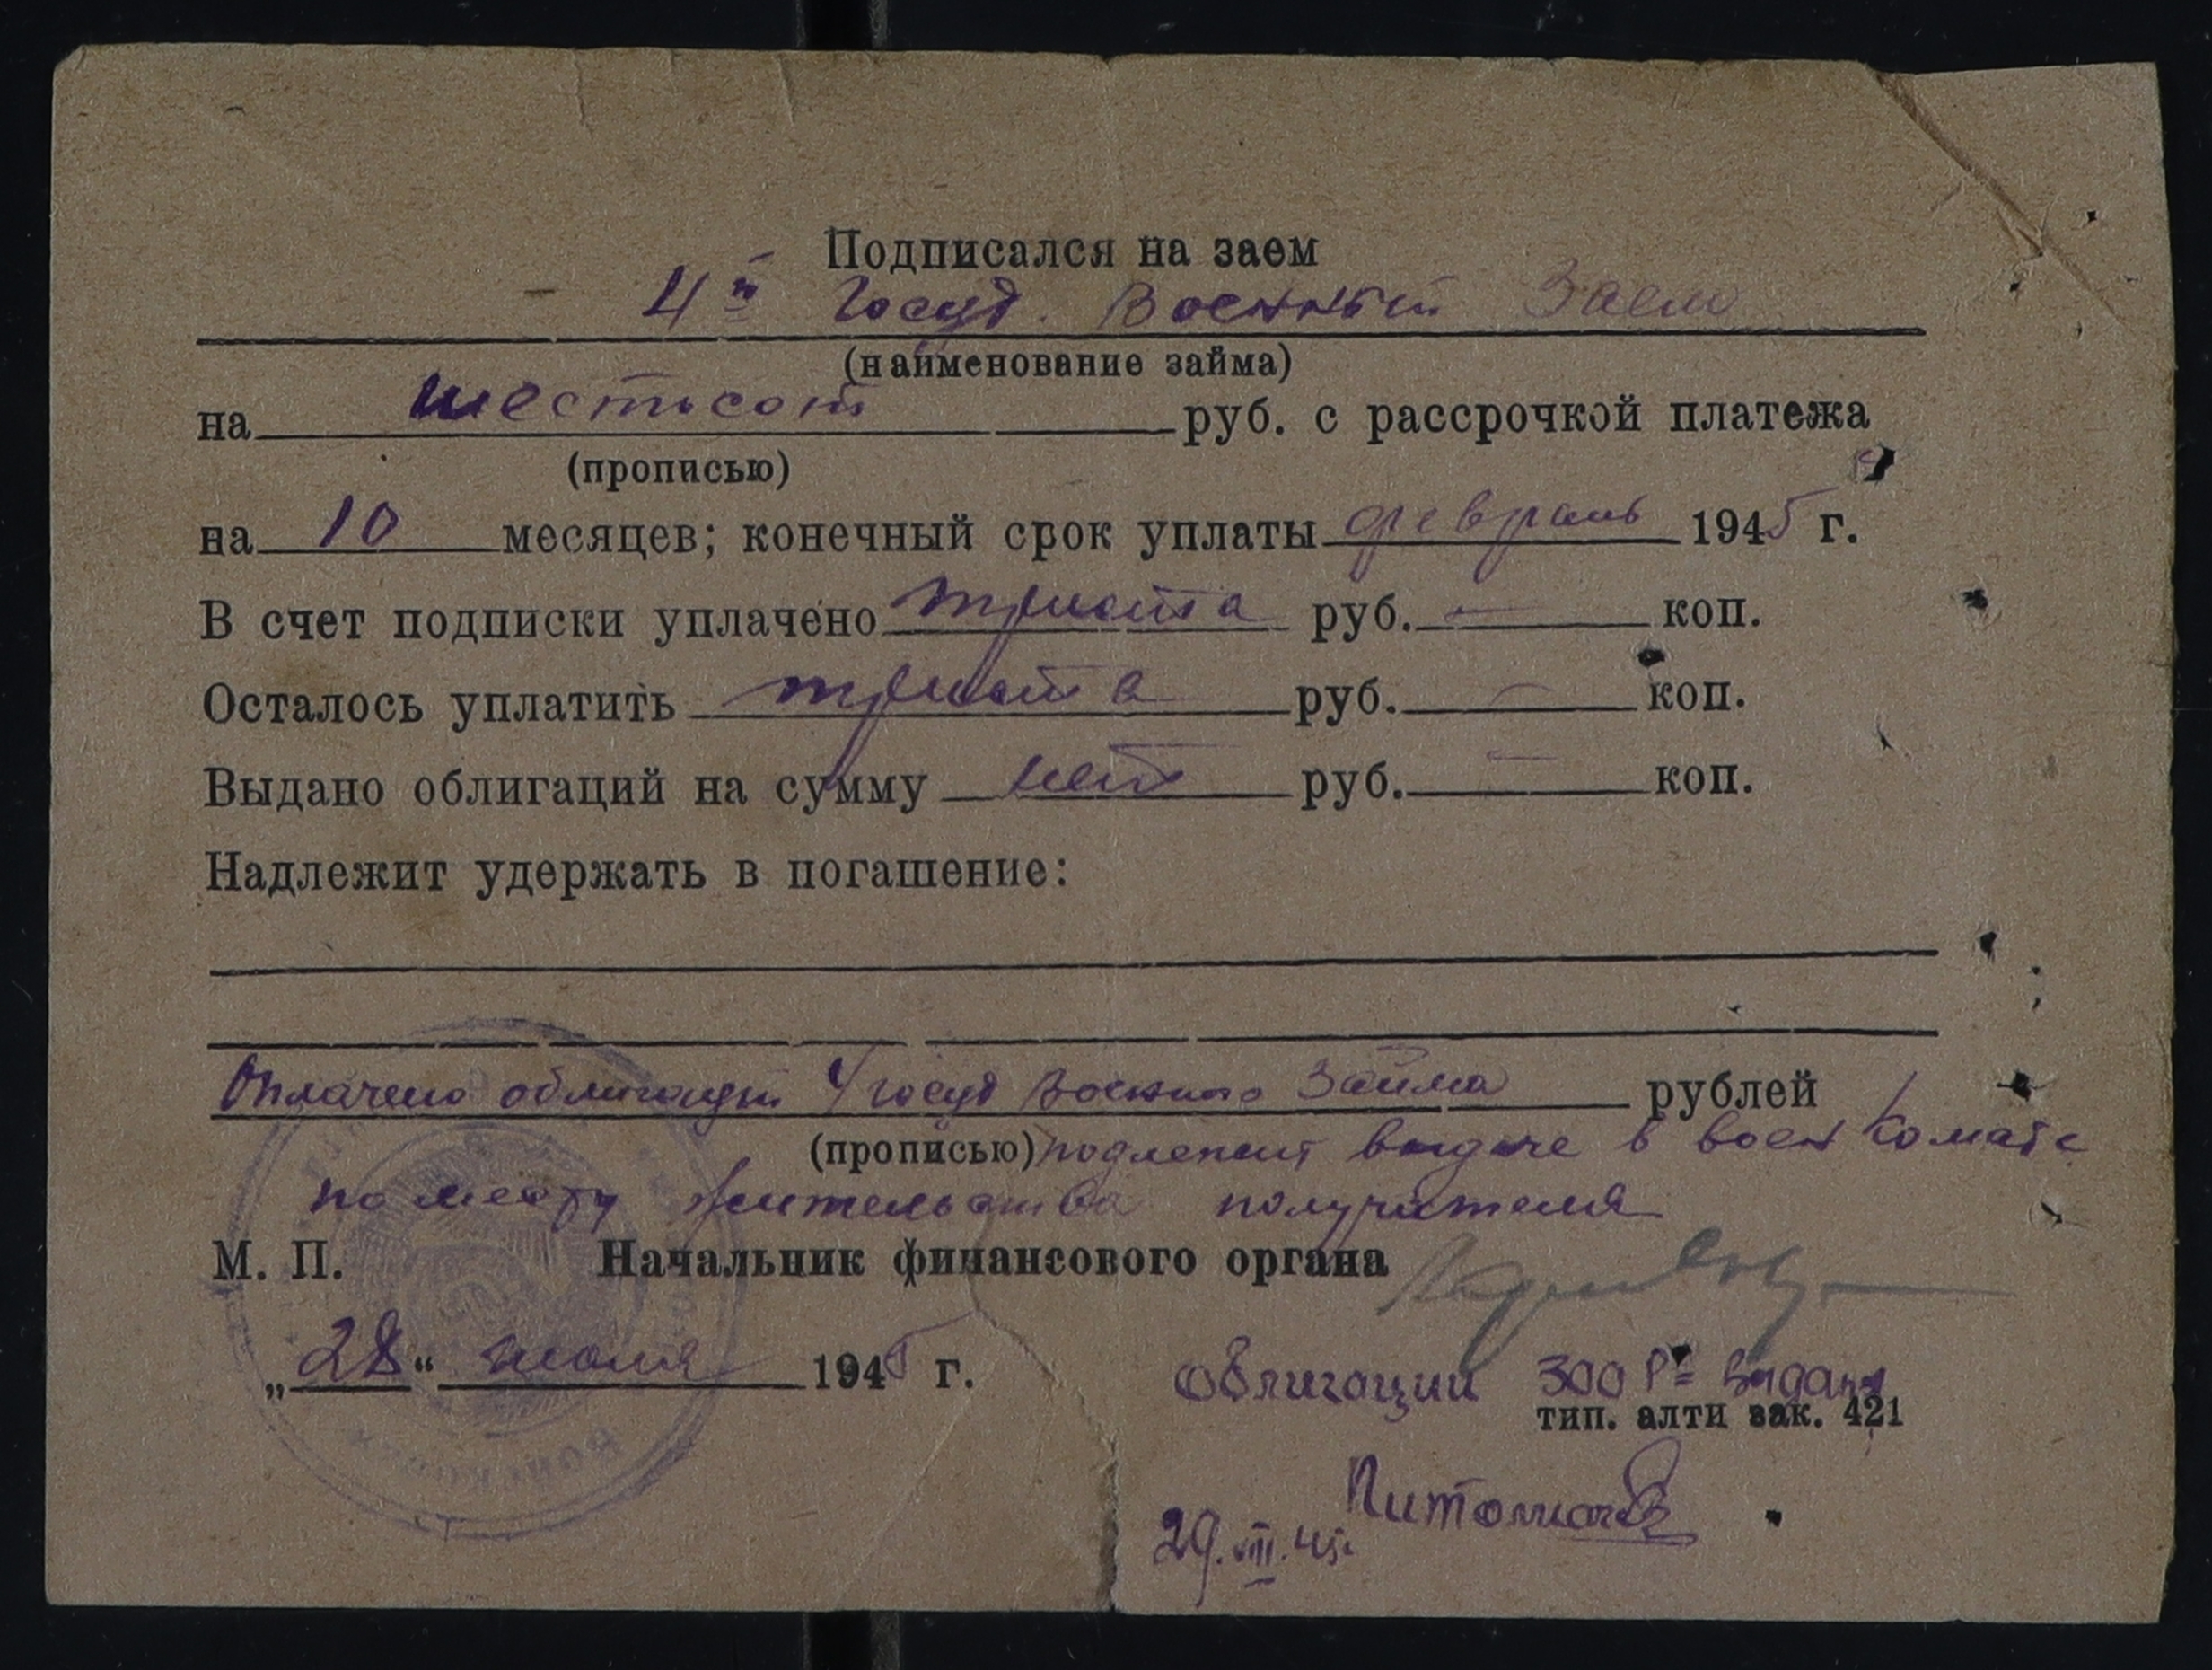 Подписался на заем
4й Госуд. Военный Заем
(наименование займа)
на шестьсот руб. с рассрочкой платежа
(прописью)
на 10 месяцев; конечный срок уплаты февраль 1945 г.
В счет подписки уплачено триста руб. — коп.
Осталось уплатить триста руб. — коп.
Выдано облигаций на сумму нет руб. — коп.
Надлежит удержать в погашение:
Оплачено облигаций 4 госуд военного Займа рублей
(прописью) подлежит выдаче в военкомате
по месту жительства получателя
М. П. Начальник финансового органа
„28“ июля 1945 г.
Облигации 300 Р= выданы
тип. алти зак. 421
29.VIII.45г.